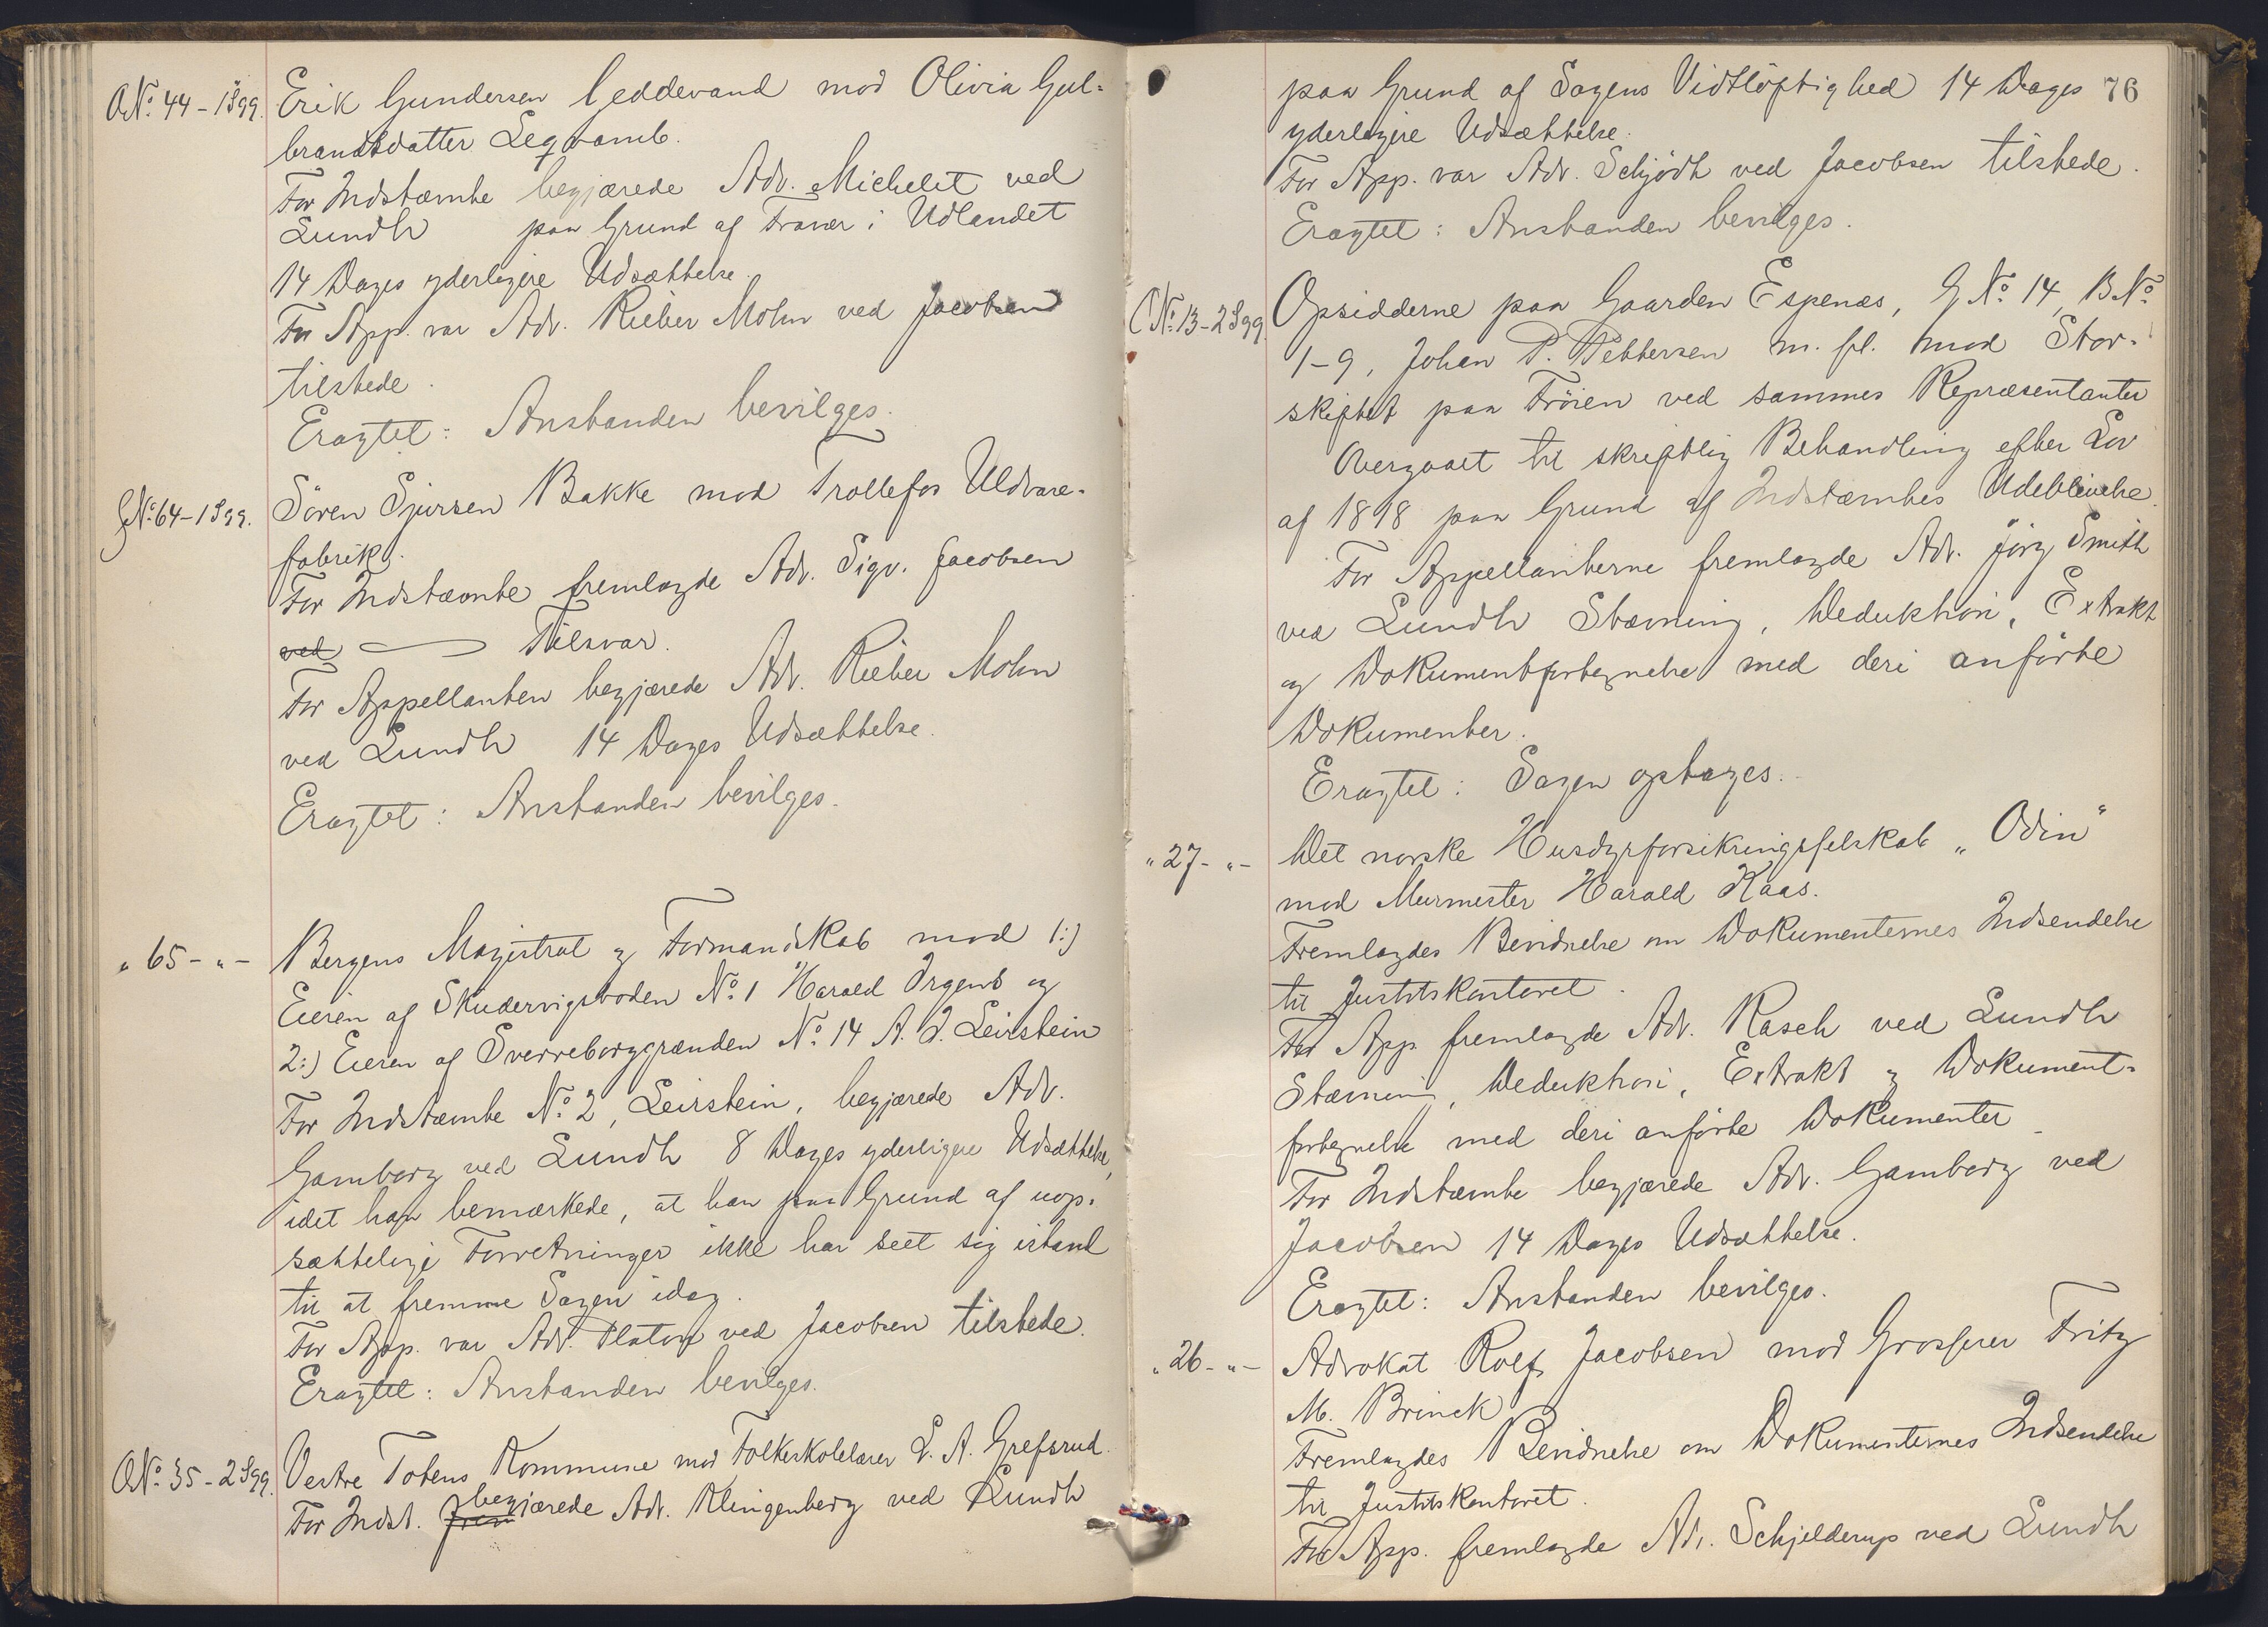 O.№ 44 - 1S99. Erik Gundersen Geddevand mod Olivia Gul-
brandsdatter Leqvamb.
For Indstæmte begjærede Adv. Michelet ved
Lundh paa Grund af Fravær i Udlandet
14 Dages yderligere Udsættelse.
For App. var Adv. Rieber Mohn ved Jacobsen
tilstede.
Eragtet: Anstanden bevilges.
G№ 64 - 1S99. Sören Sjursen Bakke mod Trollefos Uldvare-
fabrik.
For Indstæmte fremlagde Adv. Sigv. Jacobsen
ved Tilsvar.
For Appellanten begjærede Adv. Rieber Mohn
ved Lundh 14 Dages Udsættelse.
Eragtet: Anstanden bevilges.
" 65 - " - Bergens Magistrat og Formandskab mod 1:)
Eieren af Skudervigsboden № 1 Harald Irgens og
2:) Eieren af Sverreborggrænden № 14 A. J. Leirstein
For Indstæmte № 2, Leirstein, begjærede Adv.
Gamborg ved Lundh 8 Dages yderligere Udsættelse,
idet han bemærkede, at han paa Grund af uop-
sættelige Forretninger ikke har seet sig istand
til at fremme Sagen idag.
For App. var Adv. Platou ved Jacobsen tilstede.
Eragtet: Anstanden bevilges.
O№ 35 - 2S99. Vestre Totens Kommune mod Folkeskolelærer L. A. Grefsrud.
For Indst. frem begjærede Adv. Klingenberg ved Lundh
76
paa Grund af Sagens Vidtløftighed 14 Dages
yderligere Udsættelse.
For App. var Adv. Schjödt ved Jacobsen tilstede.
Eragtet: Anstanden bevilges.
C№ 13 - 2S99. Opsidderne paa Gaarden Espenæs, G№ 14, B№
1-9, Johan P. Pettersen m. fl. mod Stor-
skiftet paa Fröien ved sammes Repræsentanter
Overgaaet til skriftlig Behandling efter Lov
af 1818 paa Grund af Indstæmtes Udeblivelse.
For Appellanterne fremlagde Adv. Jörg Smith
ved Lundh Stævning, Deduktion, Extrakt
og Dokumentfortegnelse med deri anførte
Dokumenter.
Eragtet: Sagen optages.
" 27 - " - Det norske Husdyrforsikringsselskab „Odin“
mod Murmester Harald Kaas.
Fremlagdes Bevidnelse om Dokumenternes Indsendelse
til Justitskontoret.
For App. fremlagde Adv. Rasch ved Lundh
Stævning, Deduktion, Extrakt og Dokument-
fortegnelse med deri anførte Dokumenter
For Indstæmte begjærede Adv. Gamborg ved
Jacobsen 14 Dages Udsættelse.
Eragtet: Anstanden bevilges.
" 26 - " - Advokat Rolf Jacobsen mod Grosserer Fritz
M. Brinck
Fremlagdes Bevidnelse om Dokumenternes Indsendelse
til Justitskontoret.
For App. fremlagde Adv. Schjelderup ved Lundh